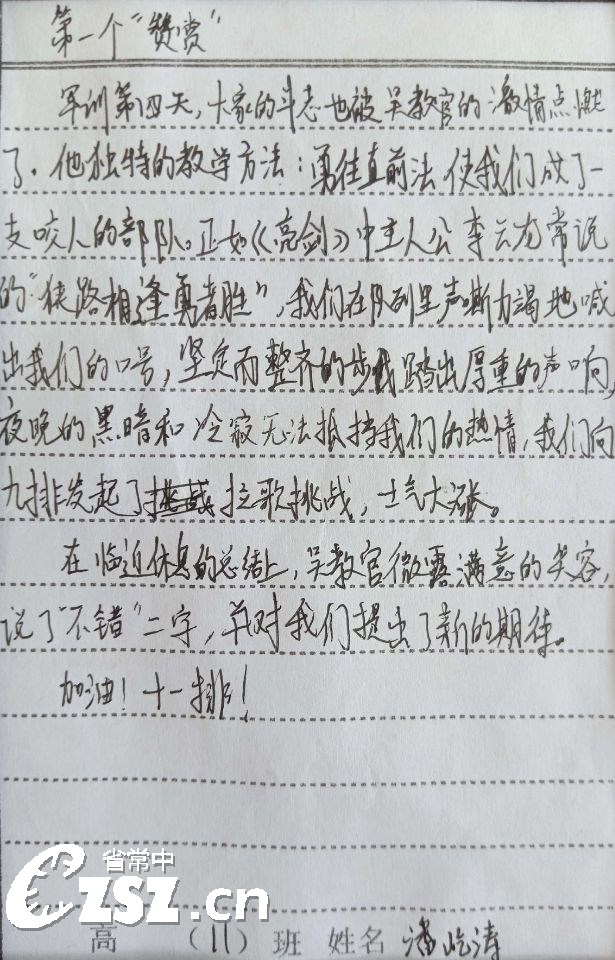 第一个“赞赏”
军训第四天，大家的斗志也被吴教官的激情点燃
了。他独特的教学方法：勇往直前法使我们成了一
支咬人的部队。正如《亮剑》中主人公李云龙常说
的“狭路相逢勇者胜”，我们在队列里声嘶力竭地喊
出我们的口号，坚定而整齐的步伐踏出厚重的声响，
夜晚的黑暗和冷寂无法抵挡我们的热情，我们向
九排发起了拉歌挑战，士气大涨。
在临近休息的总结上，吴教官微露满意的笑容，
说了“不错”二字，并对我们提出了新的期待。
加油！十一排！
省常中
CZSZ.cn
高 （11）班 姓名 潘屹涛